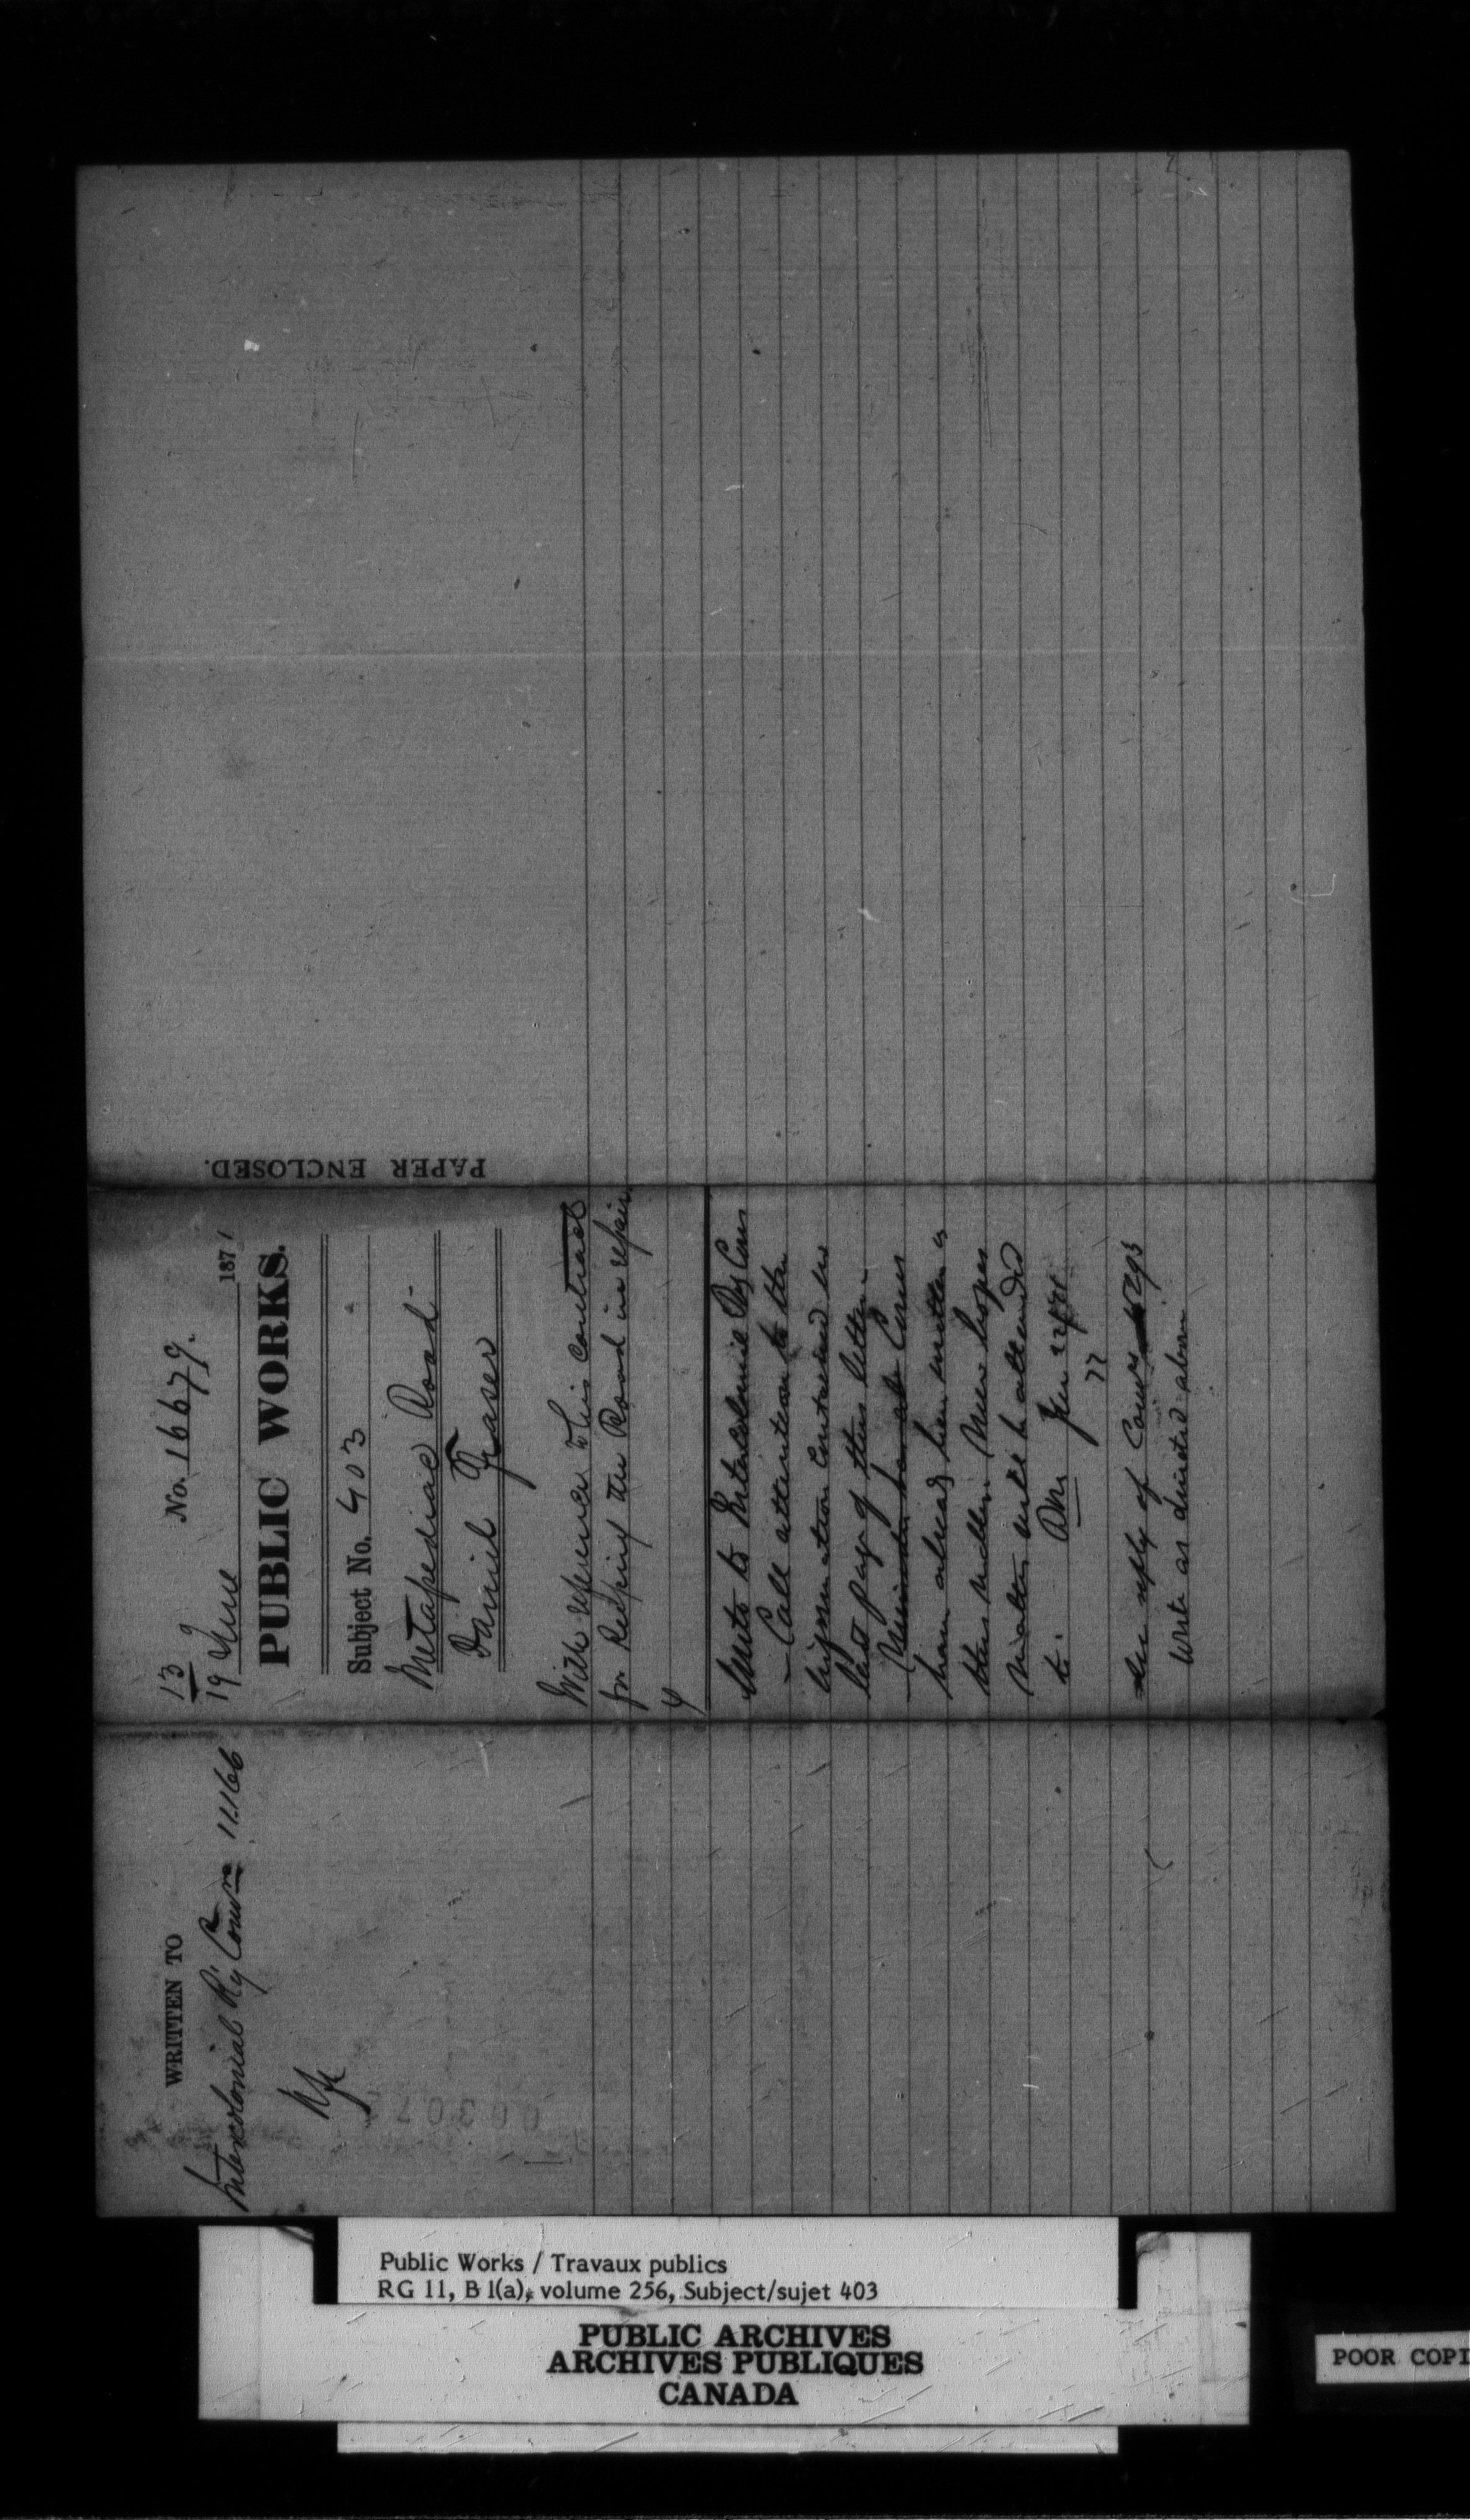 WRITTEN TO
Intercolonial Ry Comrs 11166
00307
13
19 June 1871
No. 16679.
PUBLIC WORKS.
Subject No. 403
Metapediac Road
Daniel Fraser
With reference to his contract
for keeping the Road in repair.
Write to Intercolonial Ry Coms
Call attention to the
information contained in
last page of this letter.
have already been written
this matter. Minr hopes
matter will be attended
to.
June 22
See reply of Comrs
Write as directed above
PAPER ENCLOSED.
Public Works / Travaux publics
RG 11, B 1(a), volume 256, Subject/sujet 403
PUBLIC ARCHIVES
ARCHIVES PUBLIQUES
CANADA
POOR COPI